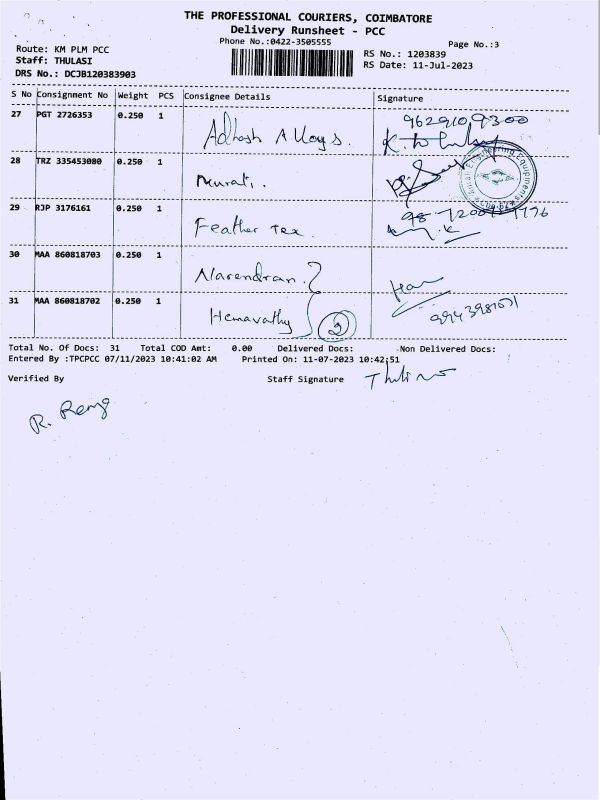 THE PROFESSIONAL COURIERS, COIMBATORE
Delivery Runsheet - PCC
Phone No.:0422-3505555
Page No.:3
Route: KM PLM PCC
Staff: THULASI
DRS No.: DCJB120383903
RS No.: 1203839
RS Date: 11-Jul-2023
S No Consignment No Weight PCS Consignee Details Signature
27 PGT 2726353 0.250 1 Adhash Alloys. 9629109300
28 TRZ 335453080 0.250 1 Murali.
29 RJP 3176161 0.250 1 Feather Tex.
30 MAA 860818703 0.250 1 Narendran.
31 MAA 860818702 0.250 1 Hemavathy 2
Total No. Of Docs: 31 Total COD Amt: 0.00 Delivered Docs: Non Delivered Docs:
Entered By :TPCPCC 07/11/2023 10:41:02 AM Printed On: 11-07-2023 10:42:51
Verified By Staff Signature